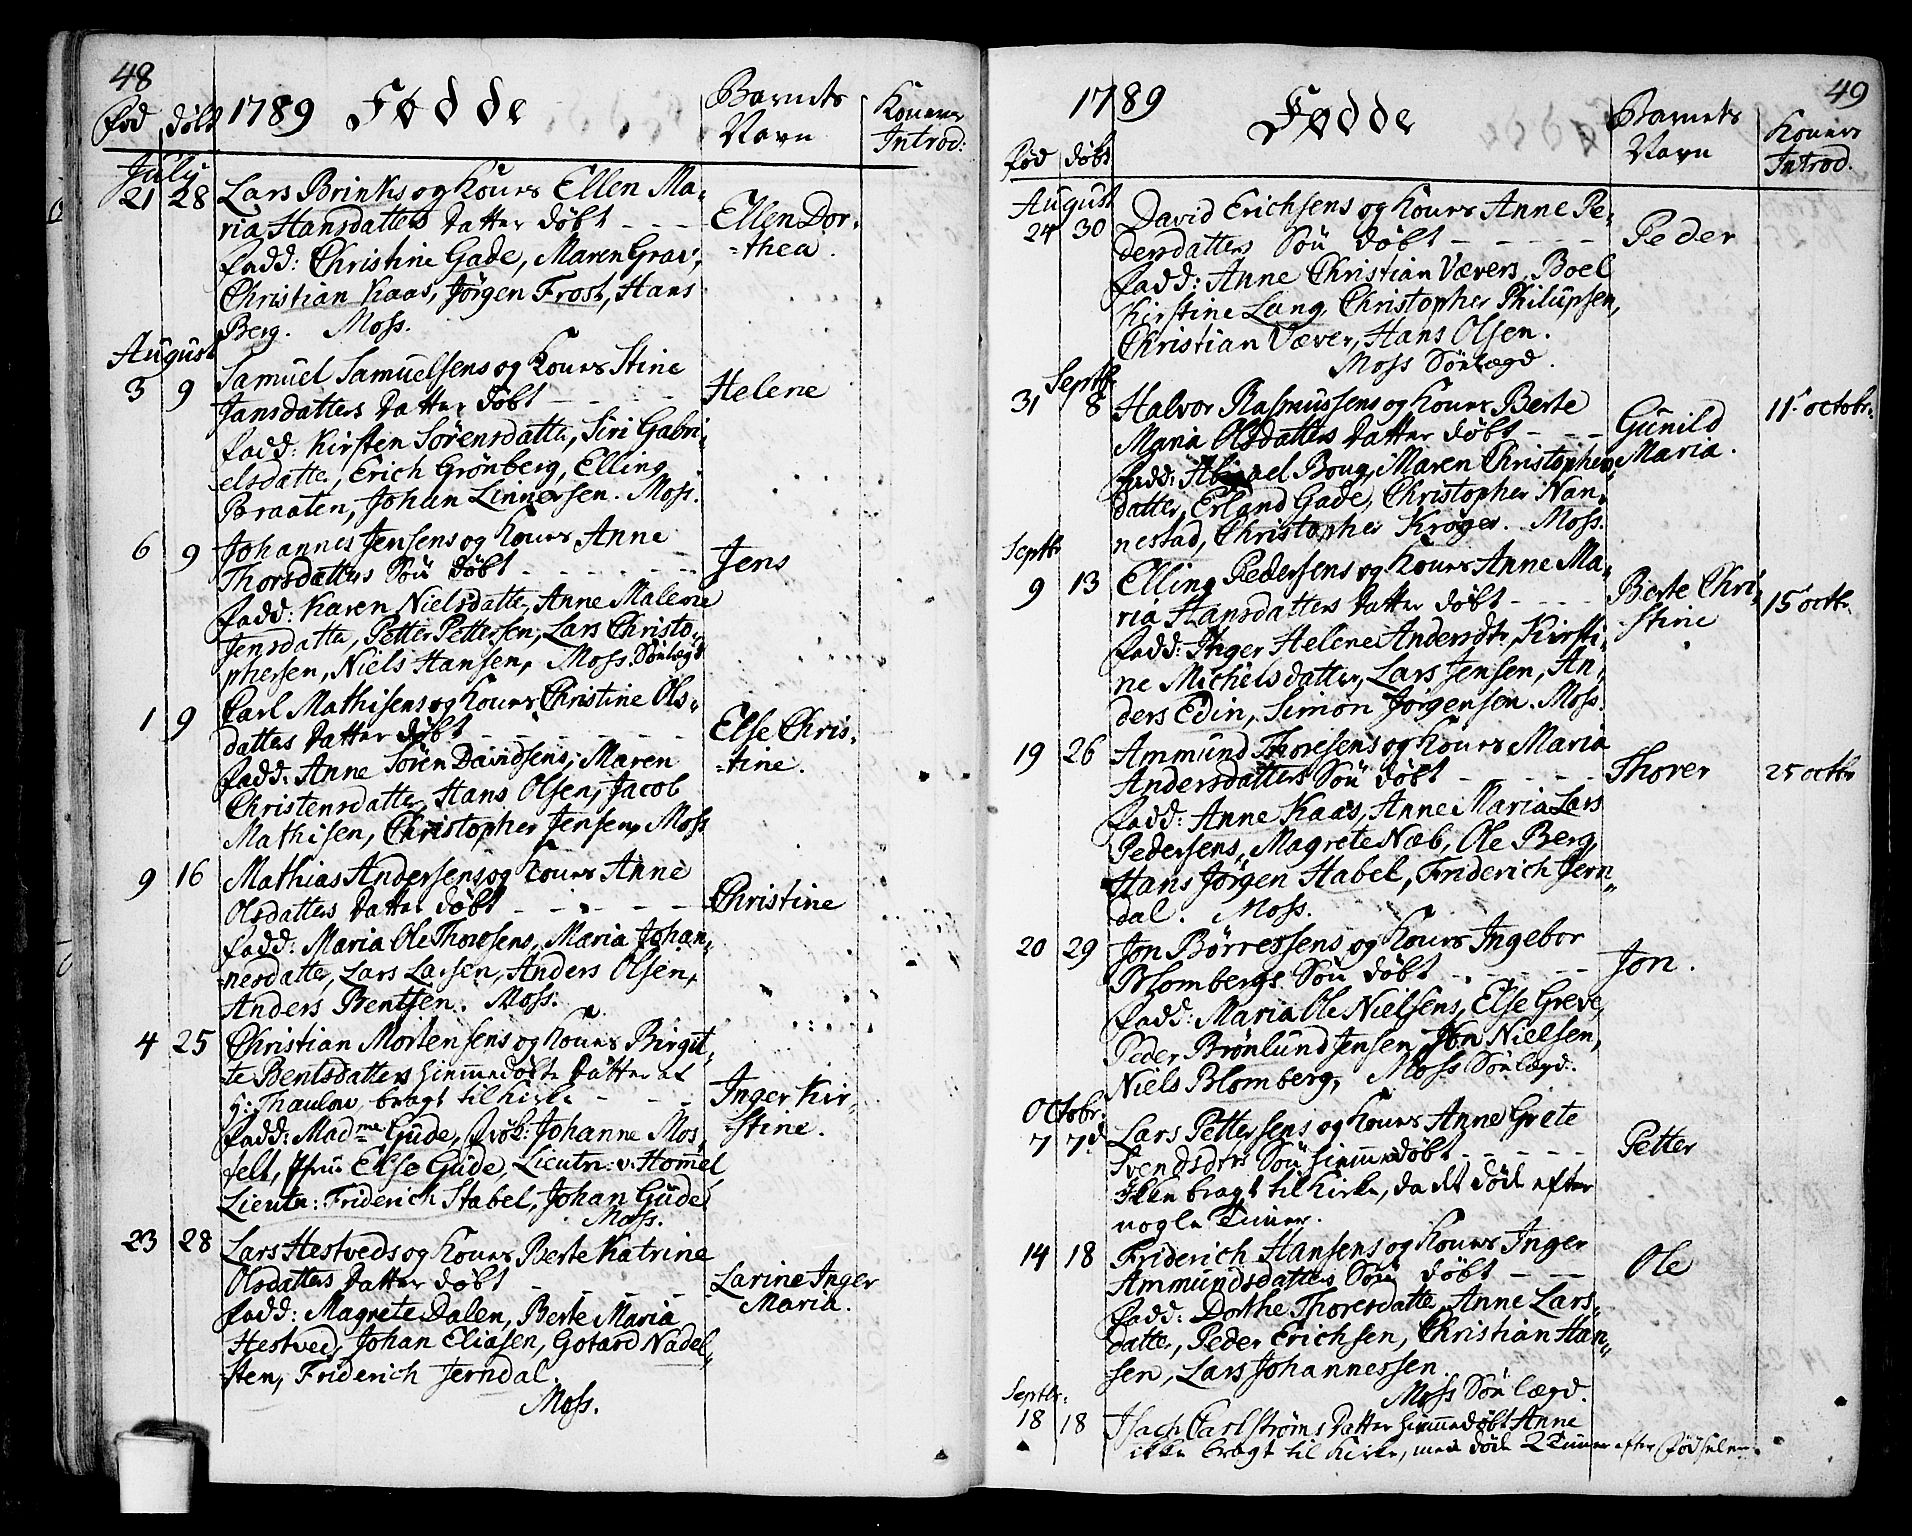 48
1789 Fødde
Fød døbt
Barnets Navn
Koners Introd:
July
21 28 Lars Brinks og Kones Ellen Ma-
ria Hansdatters datter døbt - - - Ellen Dor-
fadd: Christine Gade, Maren Grav, -thea.
Christian Kaas, Jørgen Frost, Hans
Berg. Moss.
August
Samuel Samuelsens og Kones Stine
3 9 Jansdatters datter døbt - - - Helene
fadd: Kirsten Sørensdatter, Siri Gabri-
elsdatter, Erich Grønberg, Elling
Braaten, Johan Linnersen. Moss.
6 9 Johannes Jensens og Kones Anne
Thorsdatters Søn døbt - - - Jens
fadd: Karen Nielsdatter, Anne Malene
Jensdatter, Petter Pettersen, Lars Christo-
phersen, Niels Hansen, Moss Sønlægd
1 9 Carl Mathisens og Kones Christine Ols-
datters datter døbt - - - Else Chris-
fadd: Anne Søren Davidsens, Maren -tine.
Christensdatter, Hans Olsen, Jacob
Mathisen, Christopher Jensen, Moss
9 16 Mathias Andersens og Kones Anne
Olsdatters datter døbt - - - Christine
fadd: Maria Ole Thoresens, Maria Johan-
nesdatter, Lars Larsen, Anders Olsen,
Anders Bentsen. Moss.
4 25 Christian Mortensens og Kones Birgit-
te Bentsdatters hiemmedøbte datter af
H: Thaulow, bragt til Kirke - - - Inger Kir-
fadd: Madme Gude, Johanne Mos- -stine.
felt, Else Gude, Lieutn: v: Hommel
Lieutn: Friderich Stabel, Johan Gude
Moss.
23 28 Lars Hestveds og Kones Berte Katrine
Olsdatters datter døbt - - - Larine Inger
fadd: Magrete Dalen, Berte Maria Maria.
Hestved, Johan Eliasen, Gotard Nadel-
sten, Friderich Jerndal.
Moss.
49
1789 Fødde
Fød døbt
Barnets Navn
Koners Introd.
August
24 30 David Erichsens og Kones Anne Pe-
dersdatters Søn døbt - - - Peder
fadd: Anne Christian Vævers, Boel
Kirstine Lang, Christopher Philupsen,
Christian Væver, Hans Olsen.
Moss Sønlægd.
Septbr
31 8 Halvor Rasmussens og Kones Berte 11 octobr:
Maria Olsdatters datter døbt - - - Gunild
fadd: Boug, Maren Christopher- Maria.
datter, Erland Gade, Christopher Nan-
nestad, Christopher Krøger. Moss.
Septbr
9 13 Elling Pedersens og Kones Anne Ma-
ria Hansdatters datter døbt - - - Berte Chri- 15 octbr.
fadd: Inger Helene Andersdtr, Kirsti- -stine
ne Michelsdatter, Lars Jensen, An-
ders Edin, Simon Jørgensen. Moss.
19 26 Ammund Thoresens og Kones Maria
Andersdatters Søn døbt - - - Thorer 25 octbr
fadd: Anne Kaas, Anne Maria Lars
Pedersens, Magrete Næb, Ole Berg,
Hans Jørgen Stabel, Friderich Jern-
dal. Moss.
20 29 Jon Børresens og Kones Ingebor
Blombergs Søn døbt - - - Jon.
fadd: Maria Ole Nielsens, Else Greve,
Peder Brønlund Jensen, Jon Nielsen,
Niels Blomberg, Moss Sønlægd.
Octobr:
7 7d Lars Pettersens og Kones Anne Grete
Svendsdtrs Søn hiemmedøbt - - - Petter
Ikke bragt til Kirke, da det døde efter
nogle Timer.
14 18 Friderich Hansens og Kones Inger
Ammundsdatters Søn døbt - - - Ole
fadd: Dorthe Thoresdatter, Anne Lars-
datter, Peder Erichsen, Christian Han-
sen, Lars Johannessen.
Moss Sønlægd.
Septbr:
18 18 Isach Carlstrøms datter hiemmedøbt Anne
ikke bragt til Kirke, men døde 2 Timer efter Fødselen.